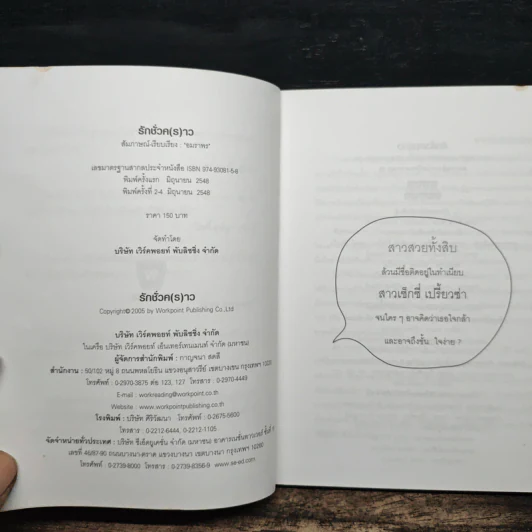 รักชั่วค(ร)าว
สัมภาษณ์-เรียบเรียง : "อมราพร"
เลขมาตรฐานสากลประจำหนังสือ ISBN 974-93081-5-6
พิมพ์ครั้งแรก มิถุนายน 2548
พิมพ์ครั้งที่ 2-4 มิถุนายน 2548
ราคา 150 บาท
จัดทำโดย
บริษัท เวิร์คพอยท์ พับลิชชิ่ง จำกัด
รักชั่วค(ร)าว
Copyright© 2005 by Workpoint Publishing Co.,Ltd
บริษัท เวิร์คพอยท์ พับลิชชิ่ง จำกัด
ในเครือ บริษัท เวิร์คพอยท์ เอ็นเทอร์เทนเมนท์ จำกัด (มหาชน)
ผู้จัดการสำนักพิมพ์ : กาญจนา สดสี
สำนักงาน : 50/102 หมู่ 8 ถนนพหลโยธิน แขวงอนุสาวรีย์ เขตบางเขน กรุงเทพฯ 10220
โทรศัพท์ : 0-2970-3875 ต่อ 123, 127 โทรสาร : 0-2970-4449
E-mail : workreading@workpoint.co.th
Website : www.workpointpublishing.co.th
โรงพิมพ์ : บริษัท ศิริวัฒนา โทรศัพท์ : 0-2675-5600
โทรสาร : 0-2212-6444, 0-2212-1105
จัดจำหน่ายทั่วประเทศ : บริษัท ซีเอ็ดยูเคชั่น จำกัด (มหาชน) อาคารเนชั่นทาวเวอร์ ชั้นที่
เลขที่ 46/87-90 ถนนบางนา-ตราด แขวงบางนา เขตบางนา กรุงเทพฯ 10260
โทรศัพท์ : 0-2739-8000 โทรสาร : 0-2739-8356-9 www.se-ed.com
สาวสวยทั้งสิบ
ล้วนมีชื่อติดอยู่ในทำเนียบ
สาวเซ็กซี่ เปรี้ยวซ่า
จนใคร ๆ อาจคิดว่าเธอใจกล้า
และอาจถึงขั้น.. ใจง่าย ?